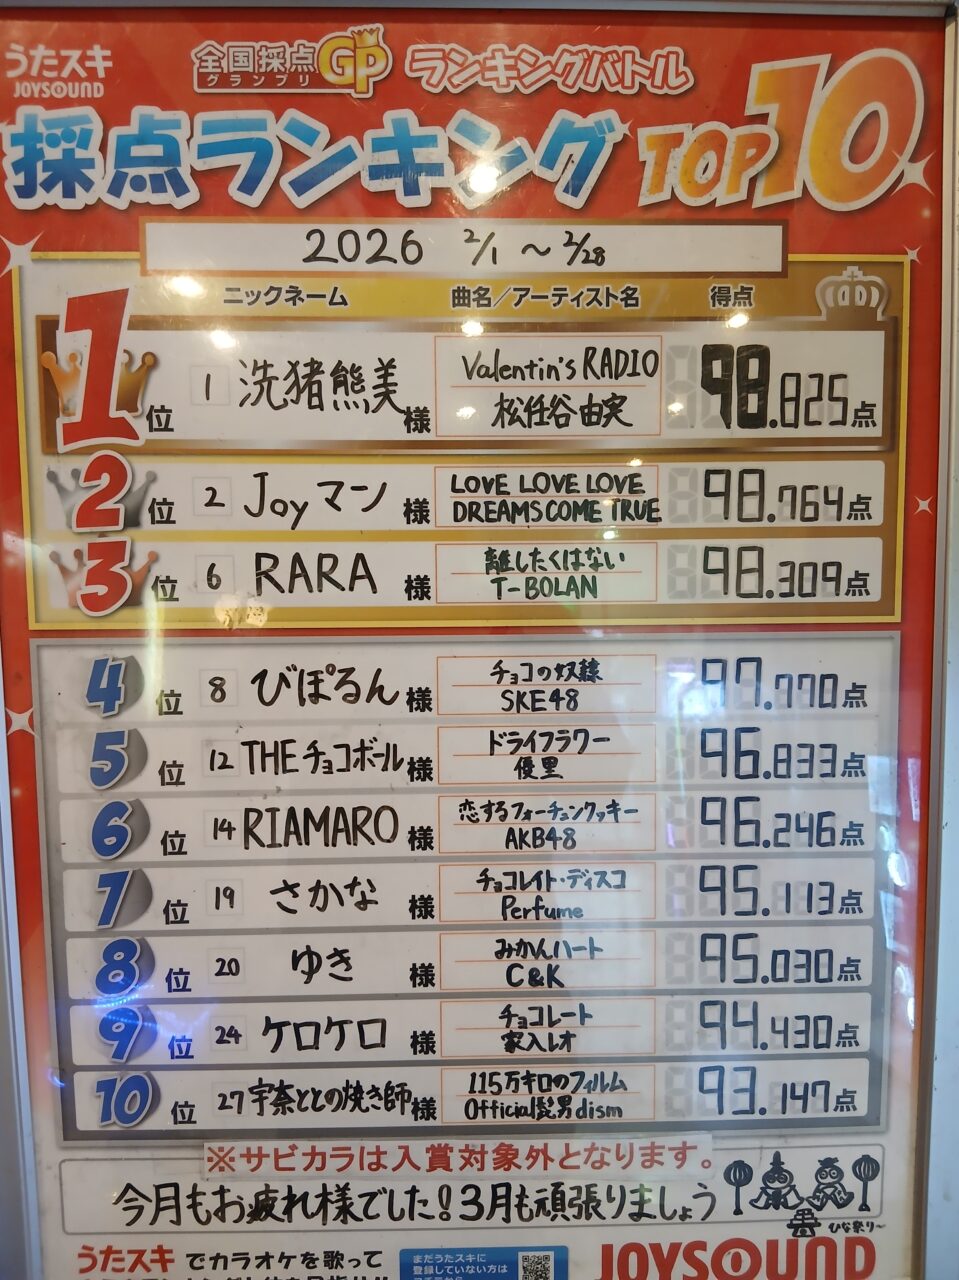 うたスキ
JOYSOUND
全国採点
グランプリ
GP
ランキングバトル
採点ランキング TOP10
2026 2/1 ~ 2/28
ニックネーム 曲名/アーティスト名 得点
1位 1 洗猪熊美様 Valentin's RADIO
松任谷由実 98.825点
2位 2 Joyマン様 LOVE LOVE LOVE
DREAMS COME TRUE 98.764点
3位 6 RARA様 離したくはない
T-BOLAN 98.309点
4位 8 びぽるん様 チョコの奴隷
SKE48 97.770点
5位 12 THEチョコボール様 ドライフラワー
優里 96.833点
6位 14 RIAMARO様 恋するフォーチュンクッキー
AKB48 96.246点
7位 19 さかな様 チョコレイト・ディスコ
Perfume 95.113点
8位 20 ゆき様 みかんハート
C&K 95.030点
9位 24 ケロケロ様 チョコレート
家入レオ 94.430点
10位 27 宇奈ととの焼き師様 115万キロのフィルム
Official髭男dism 93.147点
※サビカラは入賞対象外となります。
今月もお疲れ様でした!3月も頑張りましょう
ひな祭り~
うたスキでカラオケを歌って
まだうたスキに
登録していない方は
JOYSOUND